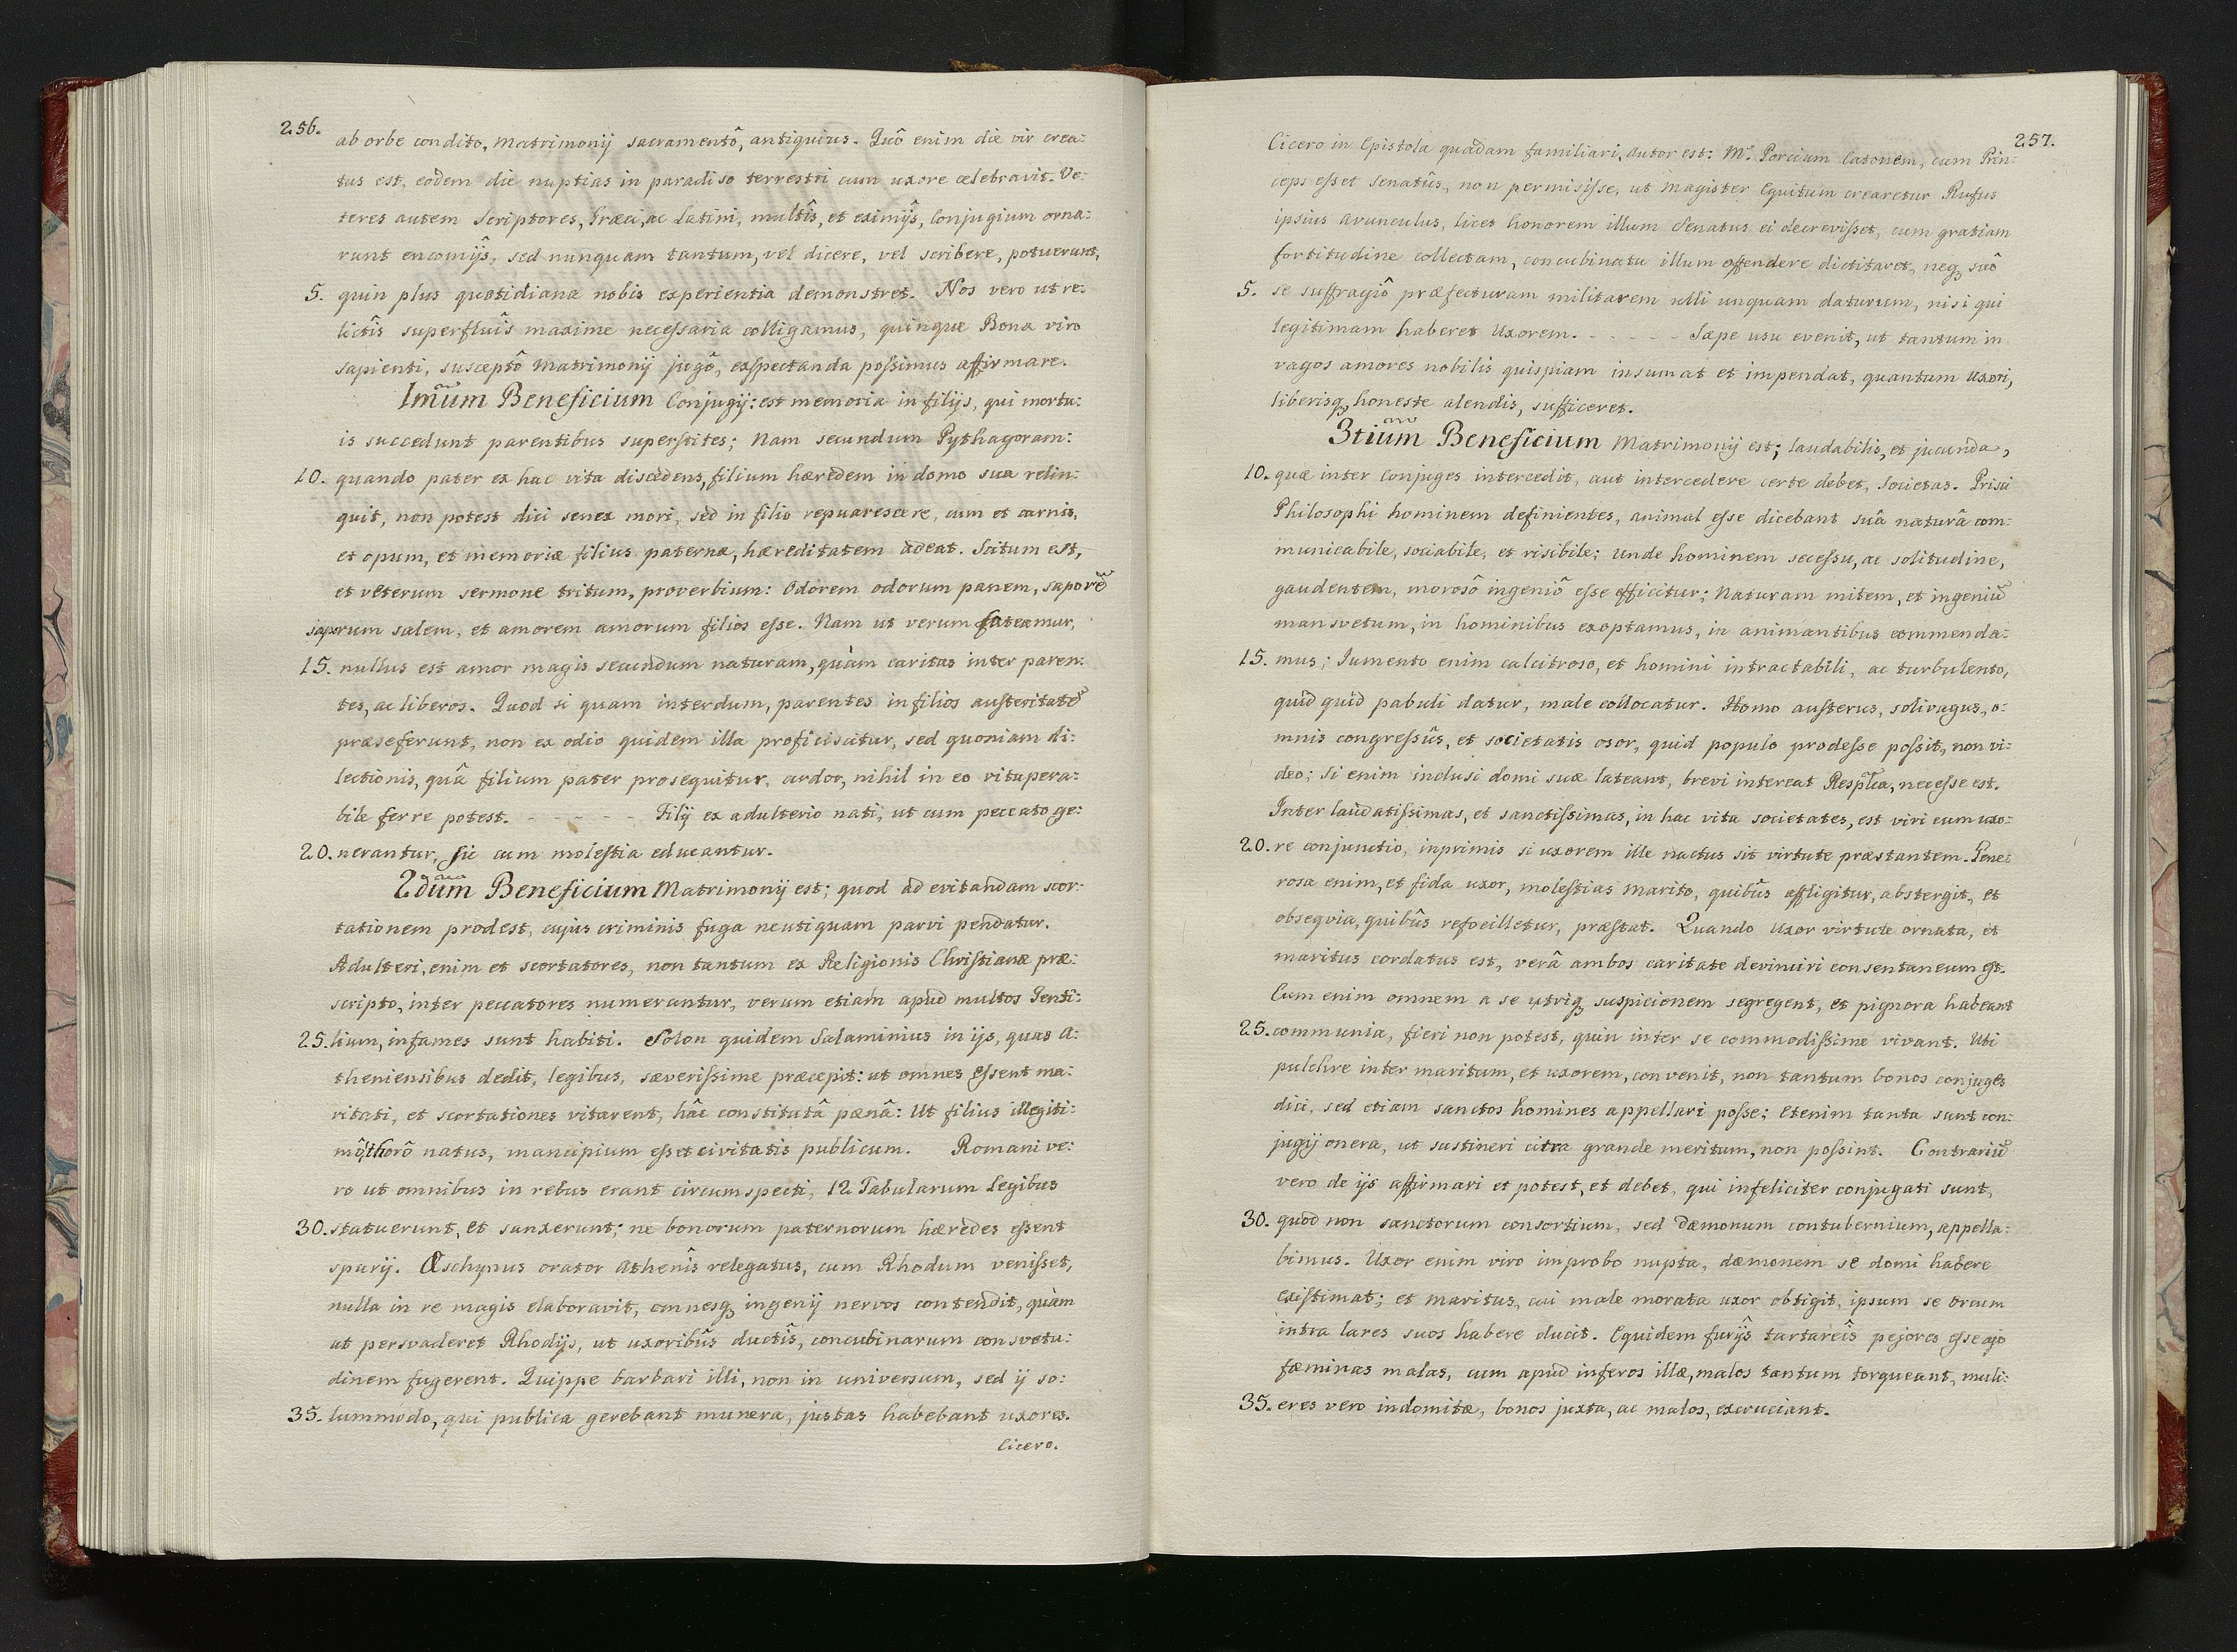 256.
ab orbe condito, Matrimonij sacramentô, antiquius. Quô enim die vir crea:
tus est, eodem die nuptias in paradiso terrestri cum uxore celebravit. Ve:
teres autem Scriptores, Græci, ac Latini, multîs, et eximijs, Conjugium orna:
runt encomijs, sed nunquam tantum, vel dicere, vel scribere, potuerunt,
5. quin plus quotidiana nobis experientia demonstret. Nos vero ut re:
lictîs superfluîs maxime necessaria colligamus, quinque Bona viro
sapienti, susceptô Matrimonij jugô, exspectanda possimus affirmare.
1mũm Beneficium Conjugij: est memoria in filijs, qui mortu:
is succedunt parentibus superstites; Nam secundum Pythagoram:
10. quando pater ex hac vita discedens, filium hæredem in domo sua relin:
quit, non potest dici senex mori, sed in filio repuarescere, cum et carnis,
et opum, et memoriæ filius paternæ, hæreditatem adeat. Scitum est,
et veterum sermone tritum, proverbium: Odorem odorum panem, saporẽ
saporum salem, et amorem amorum filios esse. Nam ut verum fateamur,
15. nullus est amor magis secundum naturam, quàm caritas inter paren:
tes, ac liberos. Quod si quam interdum, parentes in filios austeritatẽ
præseferunt, non ex odio quidem illa proficiscitur, sed quoniam di:
lectionis, quâ filium pater prosequitur, ardor, nihil in eo vitupera:
bile ferre potest. - - - - - Filij ex adulterio nati, ut cum peccato ge:
20. nerantur, sic cum molestia educantur.
2dũm Beneficium Matrimonij est; quod ad evitandam scor:
tationem prodest, cujus criminis fuga neutiquam parvi pendatur.
Adulteri, enim et scortatores, non tantum ex Religionis Christianæ præ:
scripto, inter peccatores numerantur, verum etiam apud multos Genti:
25. lium, infames sunt habiti. Solon quidem Salaminius in ijs, quas A:
theniensibus dedit, legibus, sæverissime præcepit: ut omnes essent ma:
ritati, et scortationes vitarent, hâc constitutâ pænâ: Ut filius illegiti:
mô, thorô natus, mancipium esset civitatis publicum. Romani ve:
ro ut omnibus in rebus erant circumspecti, 12 Tabularum Legibus
30. statuerunt, et sanxerunt; ne bonorum paternorum hæredes essent
spurij. Æschynus orator Athenîs relegatus, cum Rhodum venisset,
nulla in re magis elaboravit, omnesq, ingenij nervos contendit, quàm
ut persvaderet Rhodijs, ut uxoribûs ductîs, concubinarum consvetu:
dinem fugerent. Quippe barbari illi, non in universum, sed ij so:
35. lummodo, qui publica gerebant munera, justas habebant uxores.
Cicero.
257.
Cicero in Epistola quadam familiari, autor est: M. Porcium Catonem, cum Prin:
ceps esset Senatûs, non permisisse, ut Magister Equitum crearetur Rufus
ipsius Avunculus, licet honorem illum Senatus ei decrevisset, cum gratiam
fortitudine collectam, concubinatu illum offendere dictitaret, neq, suô
5. se suffragiô præfecturam militarem ulli unquam daturum, nisi qui
legitimam haberet Uxorem. - - - - - Sæpe usu evenit, ut tantum in
vagos amores nobilis quispiam insumat et impendat, quantum Uxori,
liberisq, honeste alendis, sufficeret.
3tiũm Beneficium Matrimonij est; laudabilis, et jucunda,
10. quæ inter Conjuges intercedit, aut intercedere certe debet, Societas. Prisci
Philosophi hominem definientes, animal esse dicebant suâ naturâ com:
municabile, sociabile, et risibile; Unde hominem secessu, ac solitudine,
gaudentem, morosô ingeniô esse efficitur; Naturam mitem, et ingeniũ
mansvetum, in hominibus exoptamus, in animantibus commenda:
15. mus; Jumento enim calcitroso, et homini intractabili, ac turbulento,
quid quid pabuli datur, male collocatur. Homo austerus, solivagus, o:
mnis congressûs, et societatis osor, quid populo prodesse possit, non vi:
deo; Si enim inclusi domi suæ lateant, brevi intereat Resplca, necesse est.
Inter laudatissimas, et sanctissimas, in hac vita societates, est viri cum uxo:
20. re conjunctio, inprimis si uxorem ille nactus sit virtute præstantem. Gene:
rosa enim, et fida uxor, molestias Marito, quibûs affligitur, abstergit, et
obsequia, quibûs refocilletur, præstat. Quando Uxor virtute ornata, et
maritus cordatus est, verâ ambos caritate devinciri consentaneum est.
Cum enim omnem a se utriq, suspicionem segregent, et pignora habeant
25. communia, fieri non potest, quin inter se commodissime vivant. Ubi
pulchre inter maritum, et uxorem, convenit, non tantum bonos conjuges
dici, sed etiam sanctos homines appellari posse; Etenim tanta sunt con:
jugij onera, ut sustineri citra grande meritum, non possint. Contrariũ
vero de ijs affirmari et potest, et debet, qui infeliciter conjugati sunt,
30. quod non sanctorum consortium, sed dæmonum contubernium, appella:
bimus. Uxor enim viro improbo nupta, dæmonem se domi habere
existimat; et Maritus, cui male morata uxor obtigit, ipsum se Orcum
intra lares suos habere ducit. Equidem furijs tartareîs pejores esse ajo
fæminas malas, cum apud inferos illæ, malos tantum torqueant, muli:
35. eres vero indomitæ, bonos juxta, ac malos, excruciant.